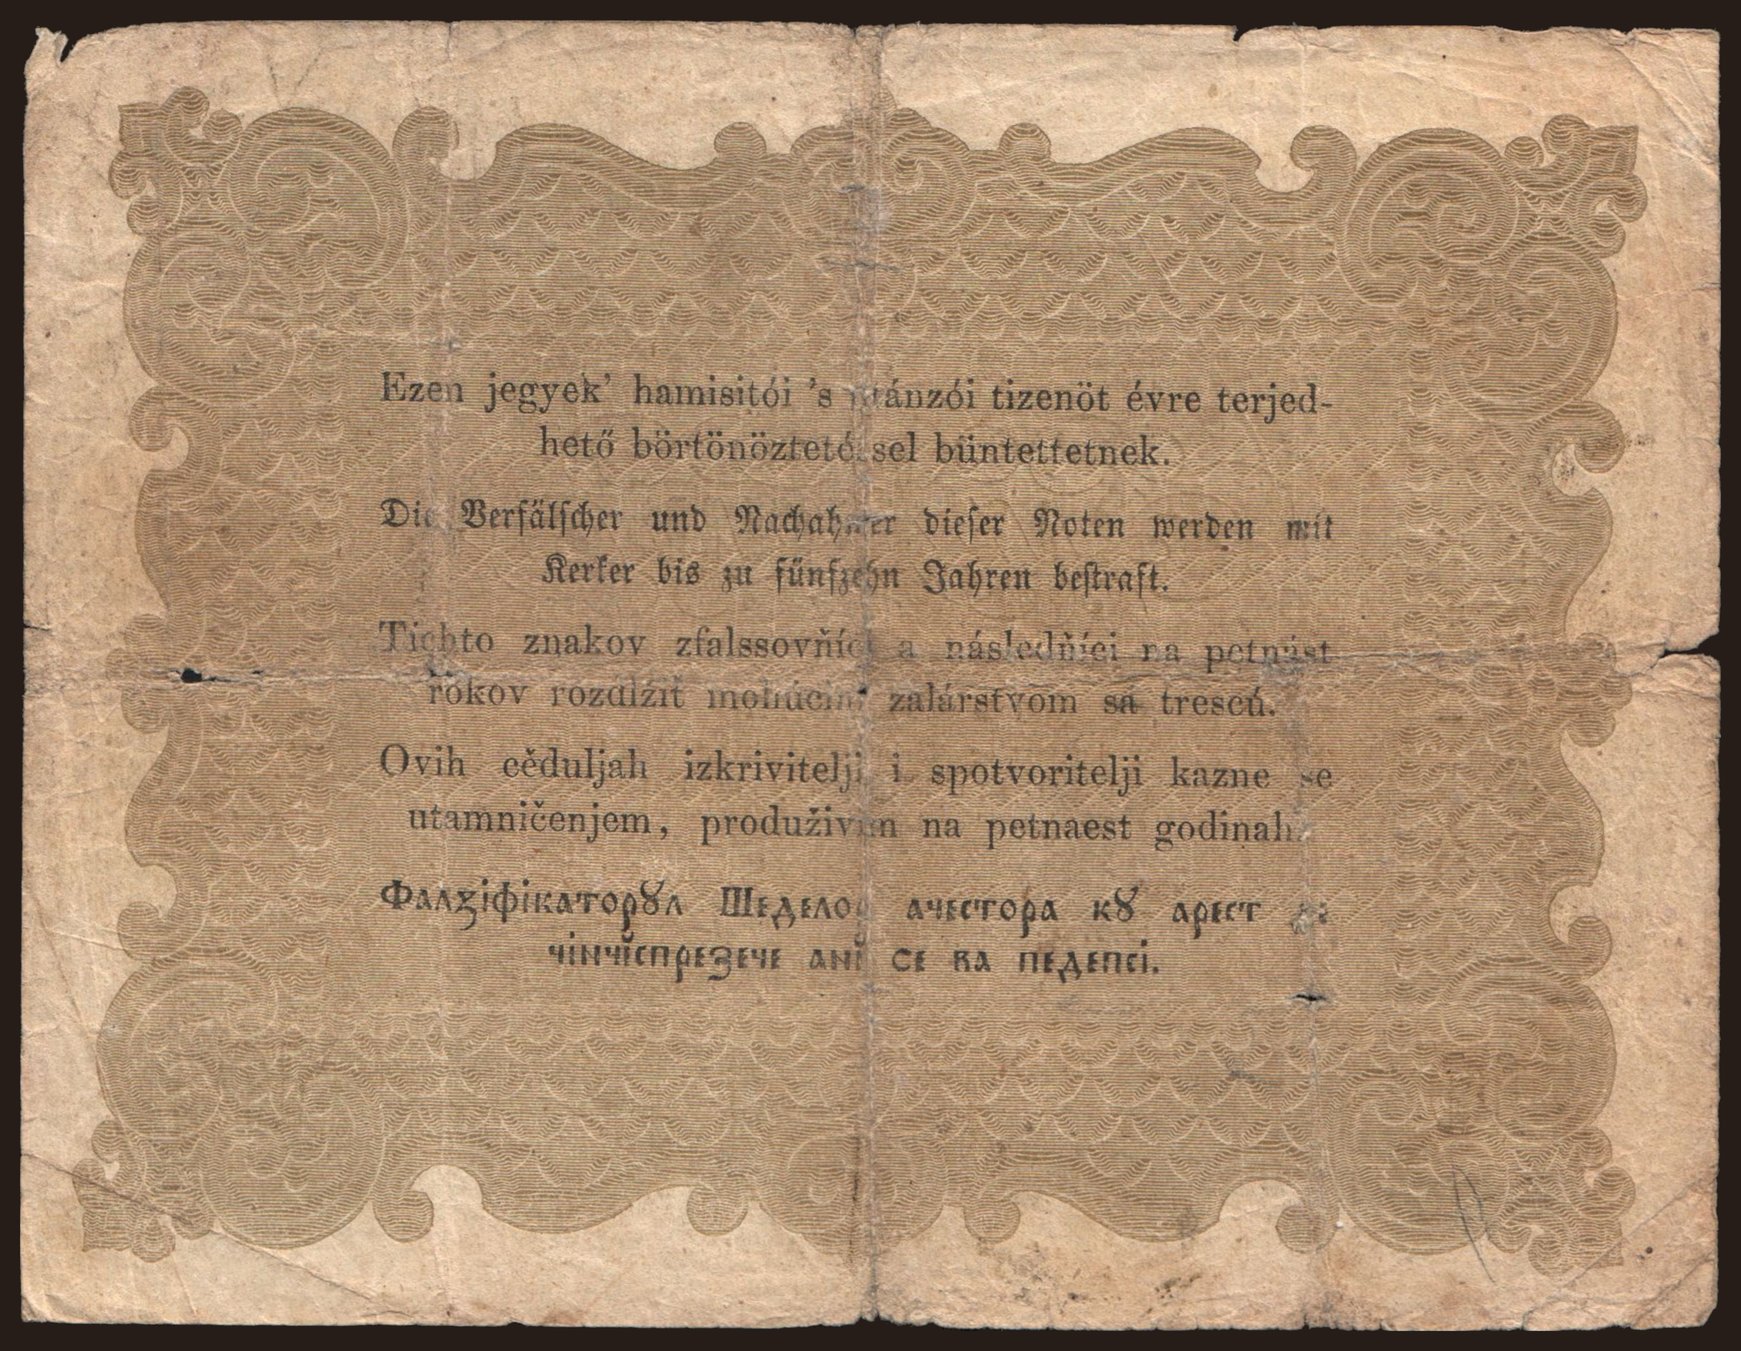 Ezen jegyek' hamisitói 's utánzói tizenöt évre terjed-
hető börtönöztetéssel büntettetnek.
Die Verfälscher und Nachahmer dieser Noten werden mit
Kerker bis zu fünfzehn Jahren bestraft.
Tíchto znakov zfalssovňíci a následňíci na petnást
rokov rozdlžiť mohúcim žalárstvom sa trescú.
Ovih cěduljah izkrivitelji i spotvoritelji kazne se
utamničenjem, produživim na petnaest godinah.
Фалꙃіфікаторꙋл Шеделор ачестора кꙋ арест
чінчĭспрезече анĭ се ва педепсі.